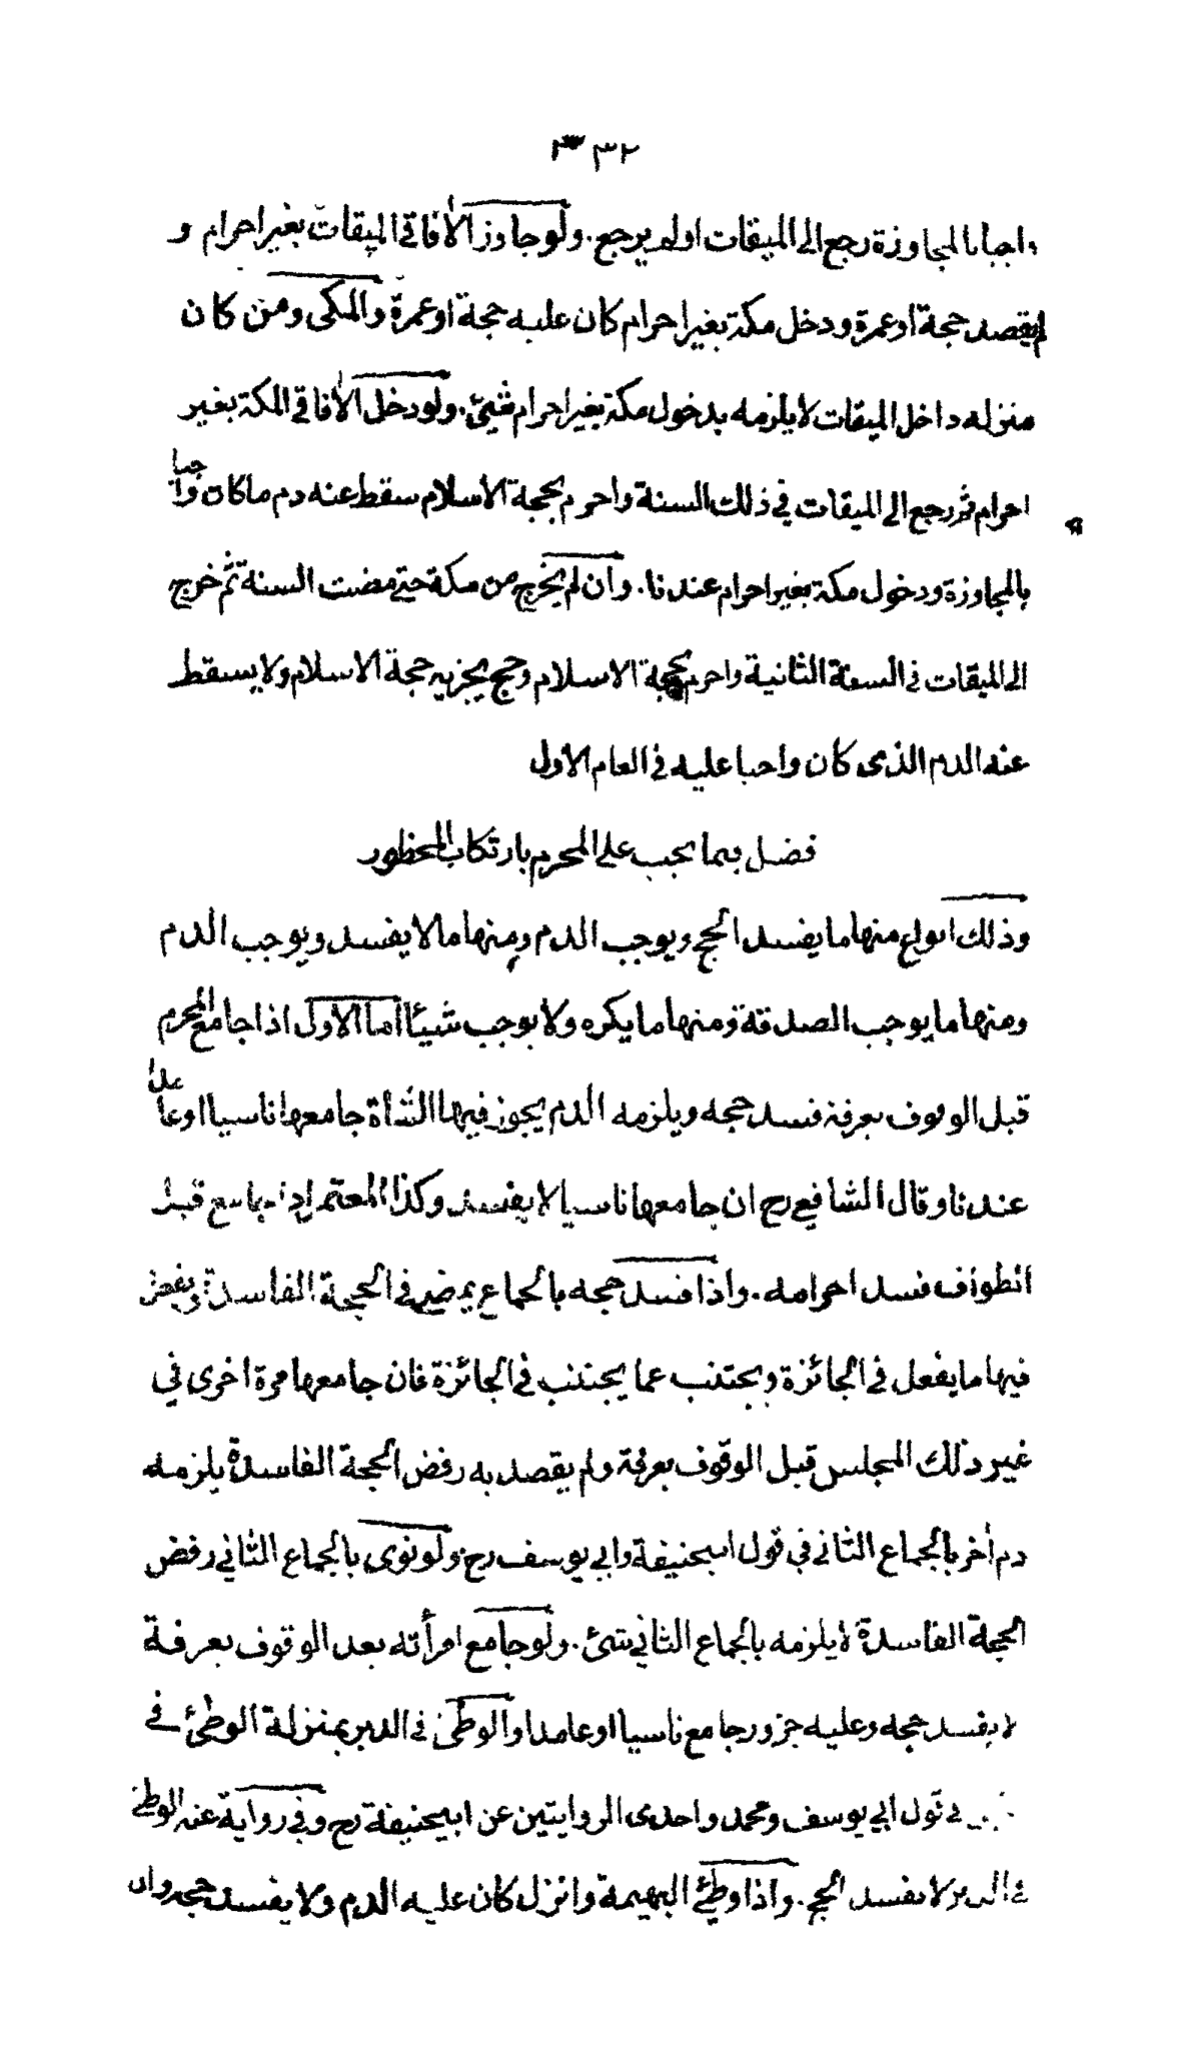 ٣٣٢
واجبا بالمجاوزة رجع الى الميقات اولم يرجع. ولو جاوز الأفاقي الميقات بغير احرام و
لم يقصد حجة او عمرة ودخل مكة بغير احرام كان عليه حجة او عمرة والمكى ومن كان
منزله داخل الميقات لا يلزمه بدخول مكة بغير احرام شيئ. ولو دخل الأفاقي المكة بغير
احرام ثم رجع الى الميقات في ذلك السنة واحرم بحجة الاسلام سقط عنه دم ما كان واجبا
بالمجاوزة ودخول مكة بغير احرام عندنا. وان لم يخرج من مكة حتى مضت السنة ثم خرج
الى الميقات في السنة الثانية واحرم بحجة الاسلام وحج يجزيه حجة الاسلام ولا يسقط
عنه الدم الذى كان واجبا عليه في العام الاول
فصل فيما يجب على المحرم بارتكاب المحظور
وذلك انواع منها ما يفسد الحج ويوجب الدم ومنها ما لا يفسد ويوجب الدم
ومنها ما يوجب الصدقة ومنها ما يكره ولا يوجب شيئا اما الاول اذا جامع المحرم
قبل الوقوف بعرفة فسد حجه ويلزمه الدم يجوز فيها الشاة جامعها ناسيا او عامدا
عندنا وقال الشافعي رح ان جامعها ناسيا لا يفسد وكذا المعتمر اذا جامع قبل
الطواف فسد احرامه. واذا فسد حجه بالجماع يمضى في الحجة الفاسدة ويفعل
فيها ما يفعل في الجائزة ويجتنب عما يجتنب في الجائزة فان جامعها مرة اخرى في
غير ذلك المجلس قبل الوقوف بعرفة ولم يقصد به رفض الحجة الفاسدة يلزمه
دم أخر بالجماع الثاني في قول ابيحنيفة وابي يوسف رح ولو نوى بالجماع الثاني رفض
الحجة الفاسدة لا يلزمه بالجماع الثاني شئ. ولو جامع امرأته بعد الوقوف بعرفة
لا يفسد حجه وعليه جزور جامع ناسيا او عامدا والوطئ في الدبر بمنزلة الوطئ في
في قول ابي يوسف ومحمد واحدى الروايتين عن ابيحنيفة رح وفي رواية عنه الوطئ
في الدبر لا يفسد الحج. واذا وطئ البهيمة وانزل كان عليه الدم ولا يفسد حجه وان